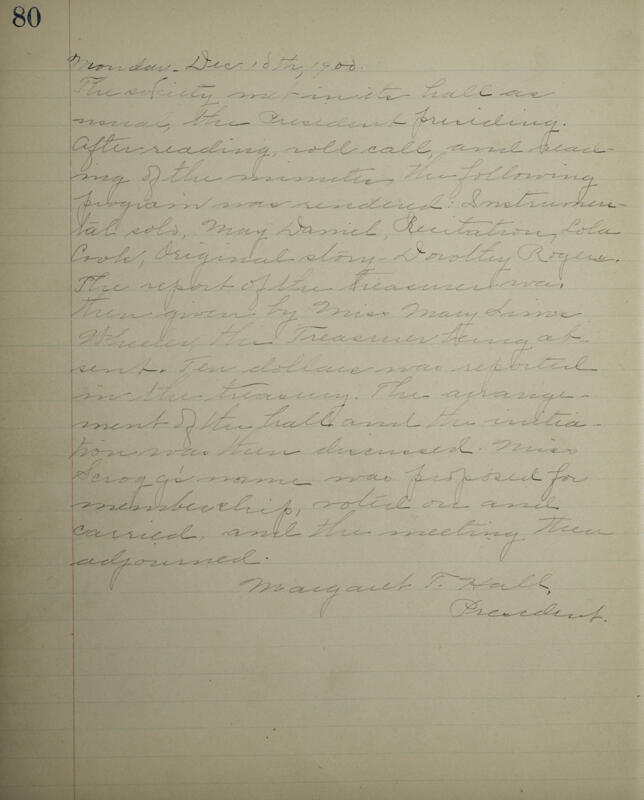 80
Monday - Dec. 10th, 1900.
The society met in its hall as
usual, the President presiding.
After reading, roll call, and read-
ing of the minutes, the following
program was rendered: Instrumen-
tal solo, May Daniel, Recitation, Lola
Cook, Original story - Dorothy Rogers.
The report of the treasurer was
then given by Miss Mary Lines
Wheeler, the Treasurer being ab-
sent. Ten dollars was reported
in the treasury. The arrange-
ment of the hall and the initia-
tion was then discussed. Miss
Scrogg's name was proposed for
membership, voted on and
carried, and the meeting then
adjourned.
Margaret T. Hall,
President.